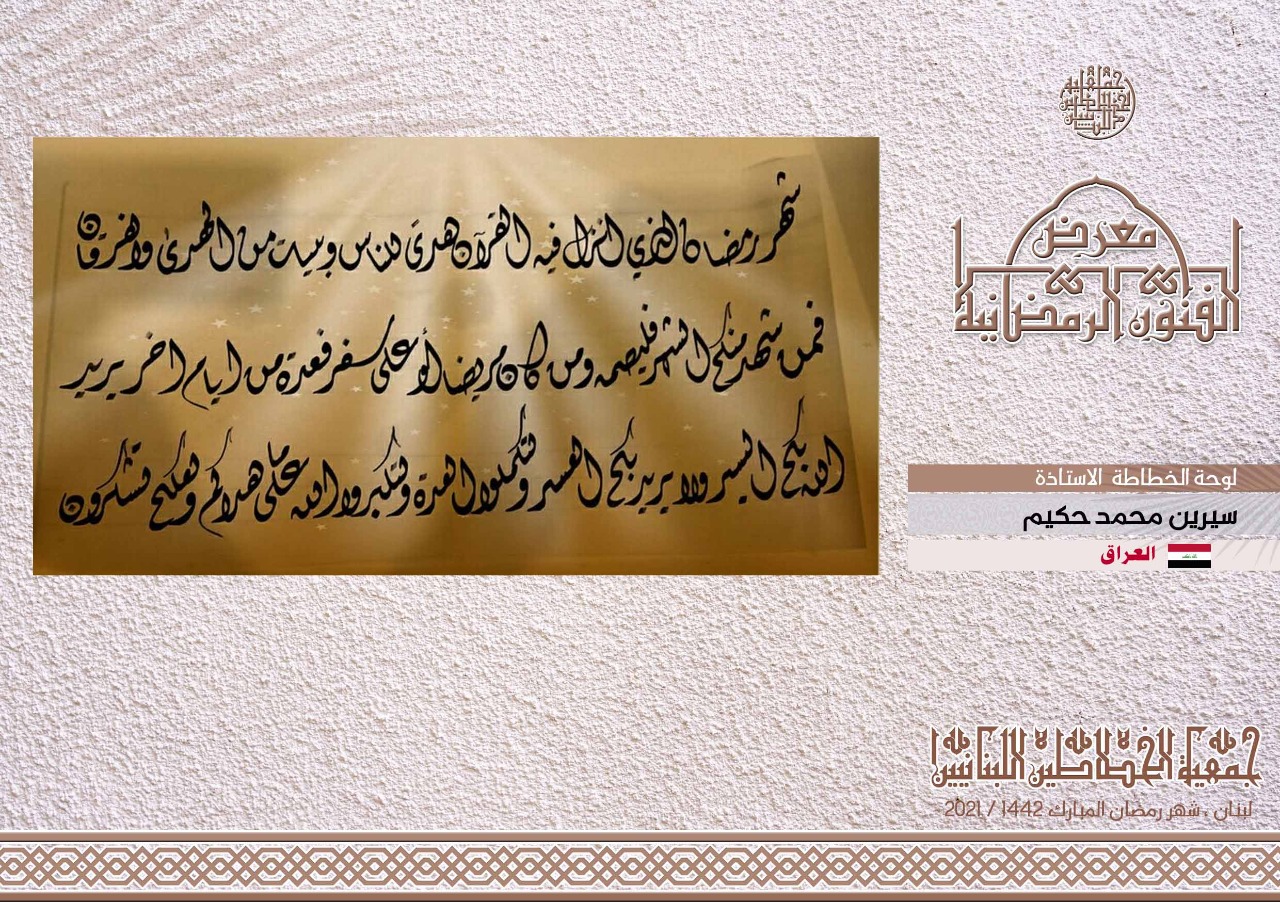 معرض
الفنون الرمضانية
شهر رمضان الذي انزل فيه القرآن هدىً للناس وبينت من الهدىٰ والفرقان
فمن شهد منكم الشهر فليصمه ومن كان مريضا أو على سفر فعدة من ايام اخر يريد
الله بكم اليسر ولا يريد بكم العسر ولتكملوا العدة ولتكبروا الله على ما هداكم ولعلكم تشكرون
لوحة الخطاطة الاستاذة
سيرين محمد حكيم
العراق
جمعية الخطاطين اللبنانيين
لبنان ، شهر رمضان المبارك 1442 / 2021